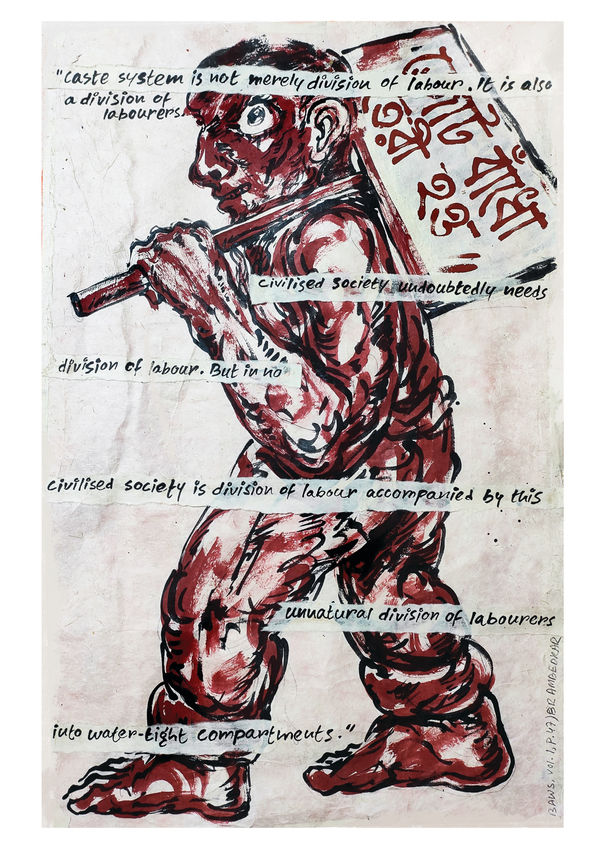 "Caste system is not merely division of labour. It is also
a division of
labourers.
জোট বাঁধো
হও
civilised society undoubtedly needs
division of labour. But in no
civilised society is division of labour accompanied by this
unnatural division of labourers
into water-tight compartments."
BAWS, Vol. 1, P. 47) BR AMBEDKAR